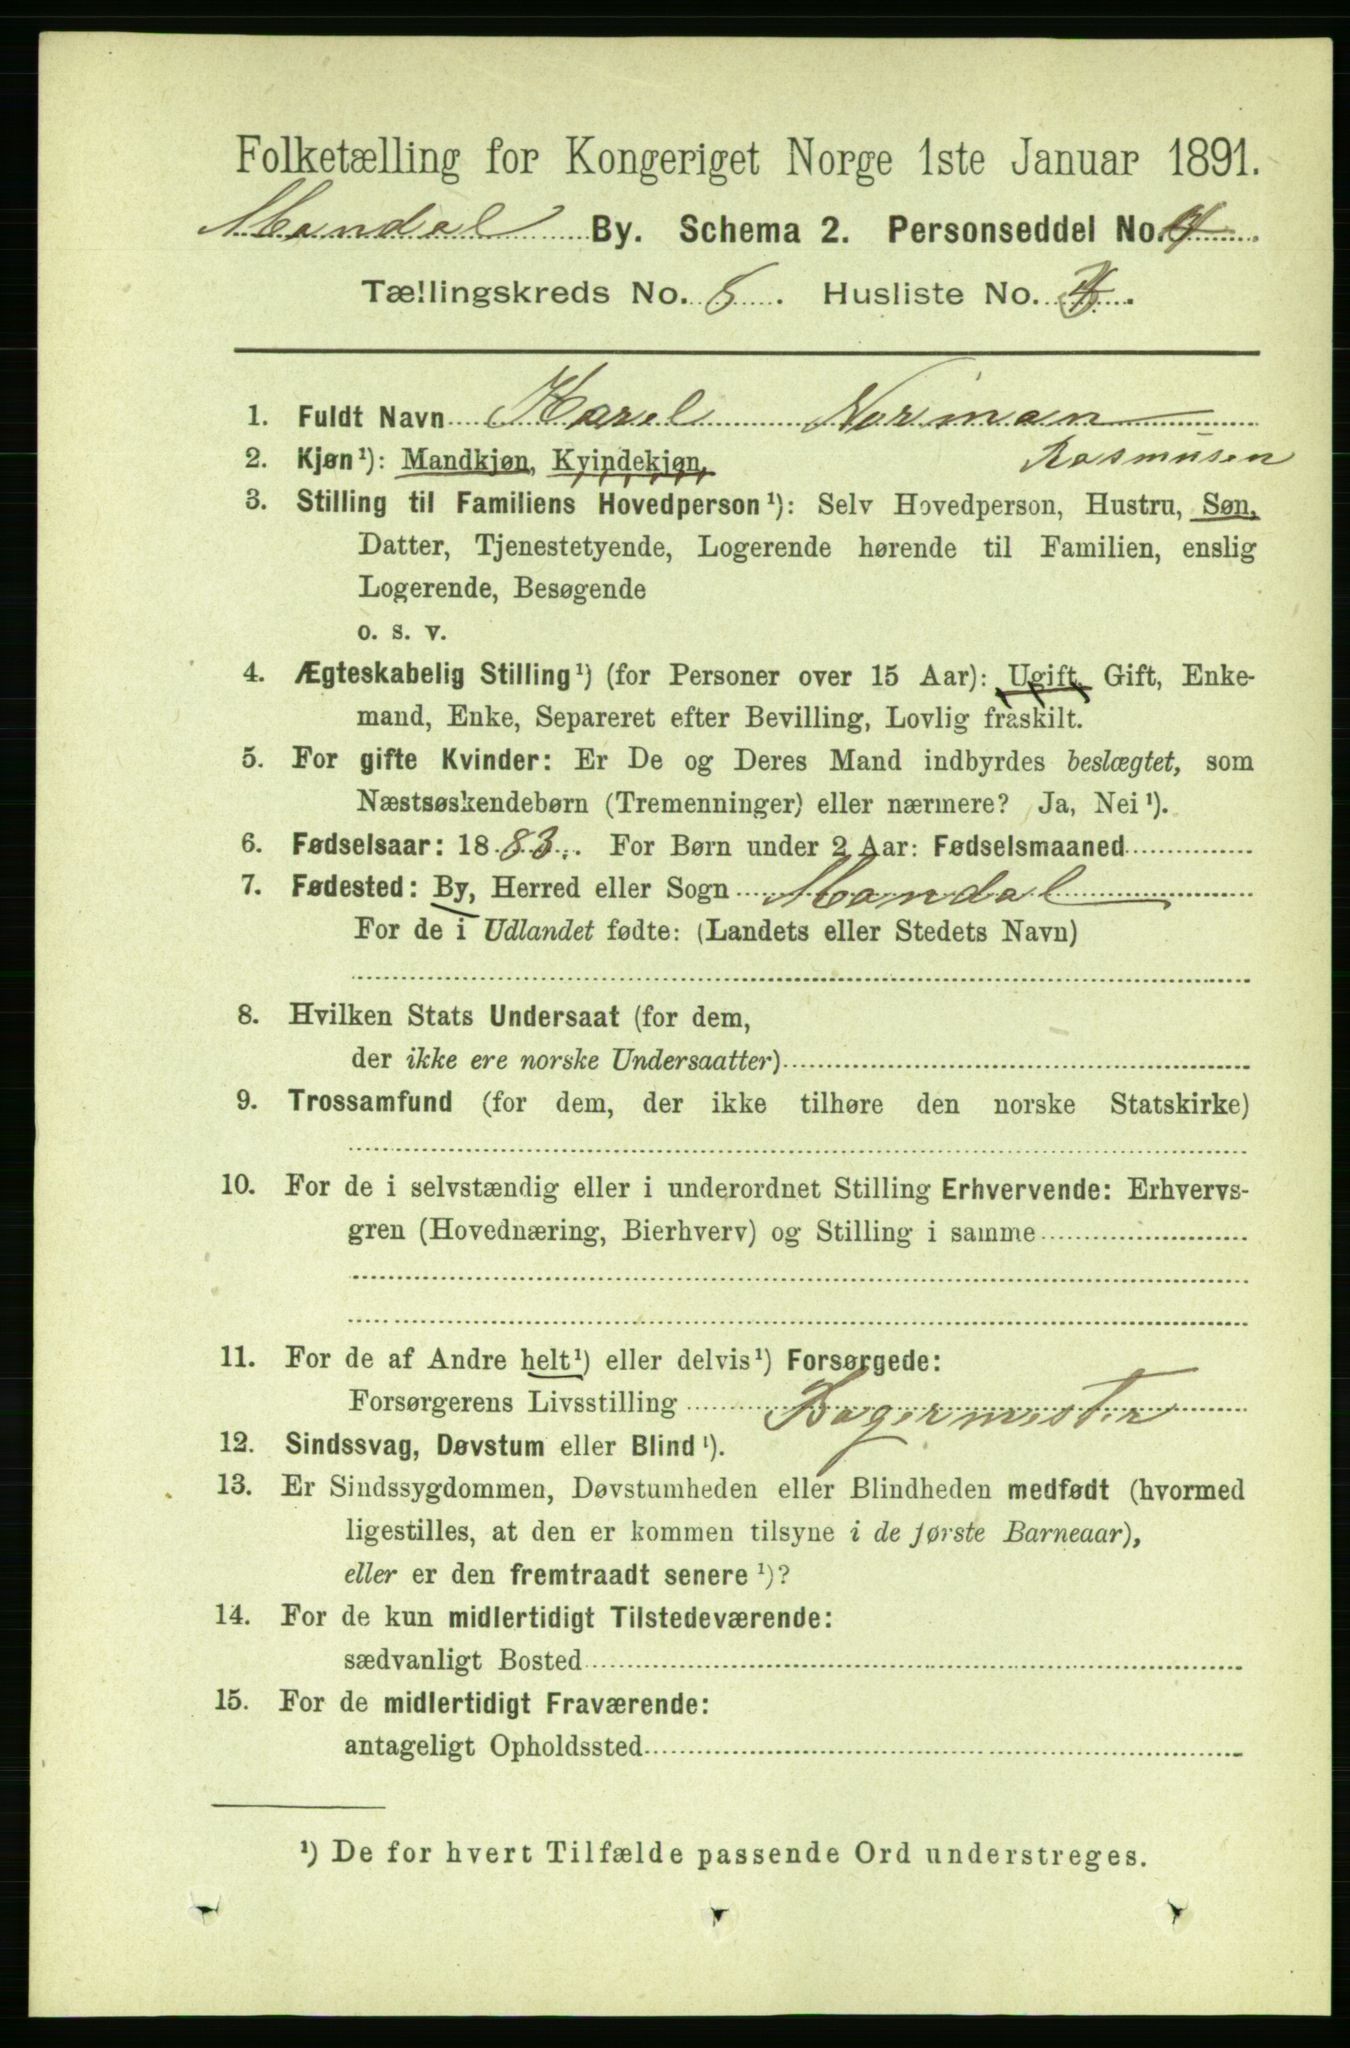 Folketælling for Kongeriget Norge 1ste Januar 1891.
Mandal By. Schema 2. Personseddel No.
Tællingskreds No. Husliste No.
1. Fuldt Navn Karel Norman
Rasmusen
2. Kjøn¹): Mandkjøn, Kvindekjøn,
3. Stilling til Familiens Hovedperson¹): Selv Hovedperson, Hustru, Søn,
Datter, Tjenestetyende, Logerende hørende til Familien, enslig
Logerende, Besøgende
o. s. v.
4. Ægteskabelig Stilling¹) (for Personer over 15 Aar): Ugift, Gift, Enke-
mand, Enke, Separeret efter Bevilling, Lovlig fraskilt.
5. For gifte Kvinder: Er De og Deres Mand indbyrdes beslægtet, som
Næstsøskendebørn (Tremenninger) eller nærmere? Ja, Nei¹).
6. Fødselsaar: 1883. For Børn under 2 Aar: Fødselsmaaned
7. Fødested: By, Herred eller Sogn Mandal
For de i Udlandet fødte: (Landets eller Stedets Navn)
8. Hvilken Stats Undersaat (for dem,
der ikke ere norske Undersaatter)
9. Trossamfund (for dem, der ikke tilhøre den norske Statskirke)
10. For de i selvstændig eller i underordnet Stilling Erhvervende: Erhvervs-
gren (Hovednæring, Bierhverv) og Stilling i samme
11. For de af Andre helt¹) eller delvis¹) Forsørgede:
Forsørgerens Livsstilling Bagermester
12. Sindssvag, Døvstum eller Blind¹).
13. Er Sindssygdommen, Døvstumheden eller Blindheden medfødt (hvormed
ligestilles, at den er kommen tilsyne i de første Barneaar),
eller er den fremtraadt senere¹)?
14. For de kun midlertidigt Tilstedeværende:
sædvanligt Bosted
15. For de midlertidigt Fraværende:
antageligt Opholdssted
¹) De for hvert Tilfælde passende Ord understreges.